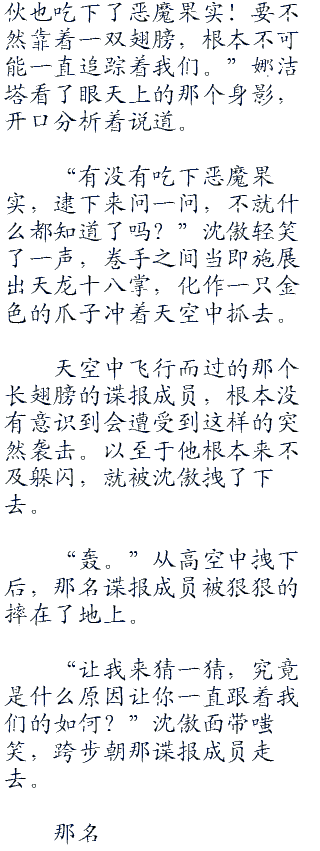 伙也吃下了恶魔果实！要不
然靠着一双翅膀，根本不可
能一直追踪着我们。”娜洁
塔看了眼天上的那个身影，
开口分析着说道。
“有没有吃下恶魔果
实，逮下来问一问，不就什
么都知道了吗？”沈傲轻笑
了一声，卷手之间当即施展
出天龙十八掌，化作一只金
色的爪子冲着天空中抓去。
天空中飞行而过的那个
长翅膀的谍报成员，根本没
有意识到会遭受到这样的突
然袭击。以至于他根本来不
及躲闪，就被沈傲拽了下
去。
“轰。”从高空中拽下
后，那名谍报成员被狠狠的
摔在了地上。
“让我来猜一猜，究竟
是什么原因让你一直跟着我
们的如何？”沈傲面带嗤
笑，跨步朝那谍报成员走
去。
那名